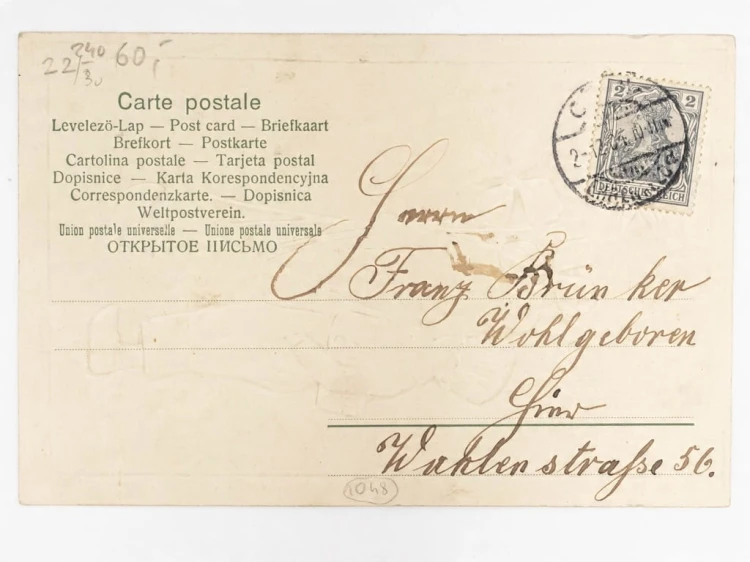 22 240/30 60,-
Carte postale
Levelezö-Lap — Post card — Briefkaart
Brefkort — Postkarte
Cartolina postale — Tarjeta postal
Dopisnice — Karta Korespondencyjna
Correspondenzkarte. — Dopisnica
Weltpostverein.
Union postale universelle — Unione postale universale
ОТКРЫТОЕ ПИСЬМО
2 2
DEUTSCHES REICH
Herrn
Franz Brünker
Wohlgeboren
Hier
Wahlenstraße 56.
1048